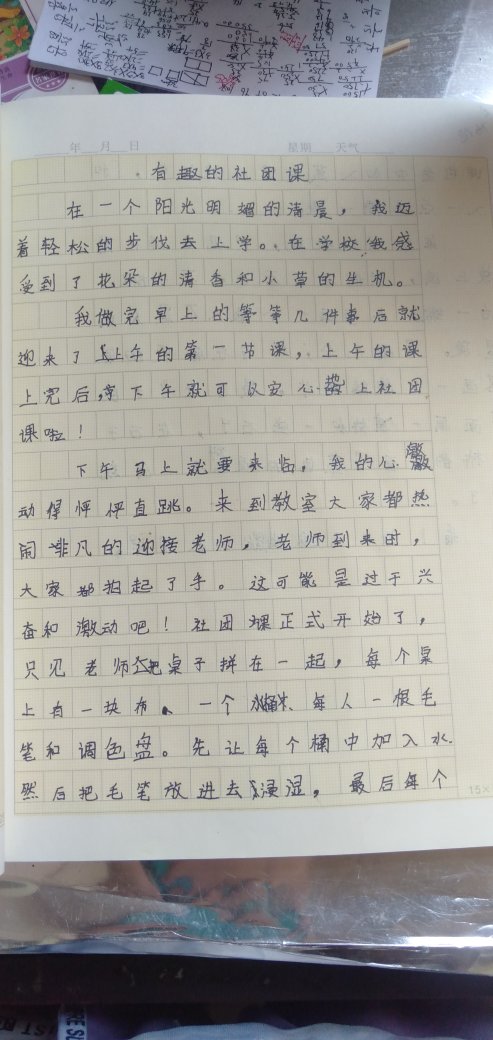 年 月 日 星期 天气
有趣的社团课
在一个阳光明媚的清晨，我迈
着轻松的步伐去上学。在学校我感
受到了花朵的清香和小草的生机。
我做完早上的等等几件事后就
迎来了上午的第一节课，上午的课
上完后，下午就可以安心上社团
课啦！
下午马上就要来临，我的心激
动得怦怦直跳。来到教室大家都热
闹非凡的迎接老师，老师到来时，
大家都拍起了手。这可能是过于兴
奋和激动吧！社团课正式开始了，
只见老师把桌子拼在一起，每个桌
上有一块布、一个水桶、每人一根毛
笔和调色盘。先让每个桶中加入水
然后把毛笔放进去浸湿，最后每个